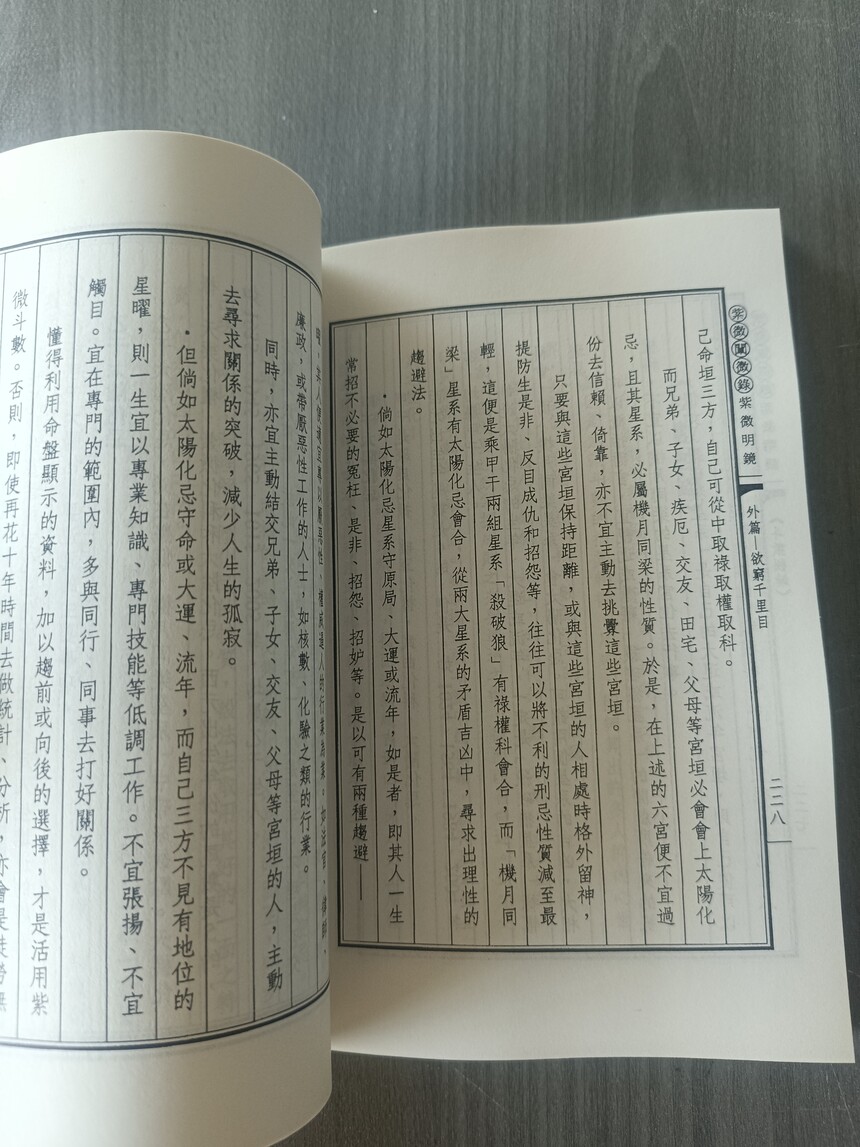 紫微闡微錄紫微明鏡
外篇—欲窮千里目
二二八
己命垣三方，自己可從中取祿取權取科。
而兄弟、子女、疾厄、交友、田宅、父母等宮垣必會會上太陽化
忌，且其星系，必屬機月同梁的性質。於是，在上述的六宮便不宜過
份去信賴、倚靠，亦不宜主動去挑釁這些宮垣。
只要與這些宮垣保持距離，或與這些宮垣的人相處時格外留神，
提防生是非、反目成仇和招怨等，往往可以將不利的刑忌性質減至最
輕，這便是乘甲干兩組星系「殺破狼」有祿權科會合，而「機月同
梁」星系有太陽化忌會合，從兩大星系的矛盾吉凶中，尋求出理性的
趨避法。
·倘如太陽化忌星系守原局、大運或流年，如是者，即其人一生
常招不必要的冤枉、是非、招怨、招妒等。是以可有兩種趨避——
廉政，或帶厭惡性工作的人士，如核數、化驗之類的行業。
同時，亦宜主動結交兄弟、子女、交友、父母等宮垣的人，主動
去尋求關係的突破，減少人生的孤寂。
·但倘如太陽化忌守命或大運、流年，而自己三方不見有地位的
星曜，則一生宜以專業知識、專門技能等低調工作。不宜張揚、不宜
觸目。宜在專門的範圍內，多與同行、同事去打好關係。
懂得利用命盤顯示的資料，加以趨前或向後的選擇，才是活用紫
微斗數。否則，即使再花十年時間去做統計、分析，亦會是徒勞無